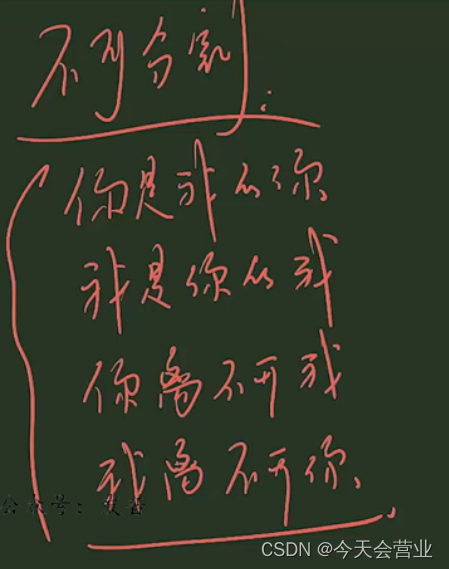 不可分割:
你是我的你
我是你的我
你离不开我
我离不开你、
公众号：
CSDN @今天会营业